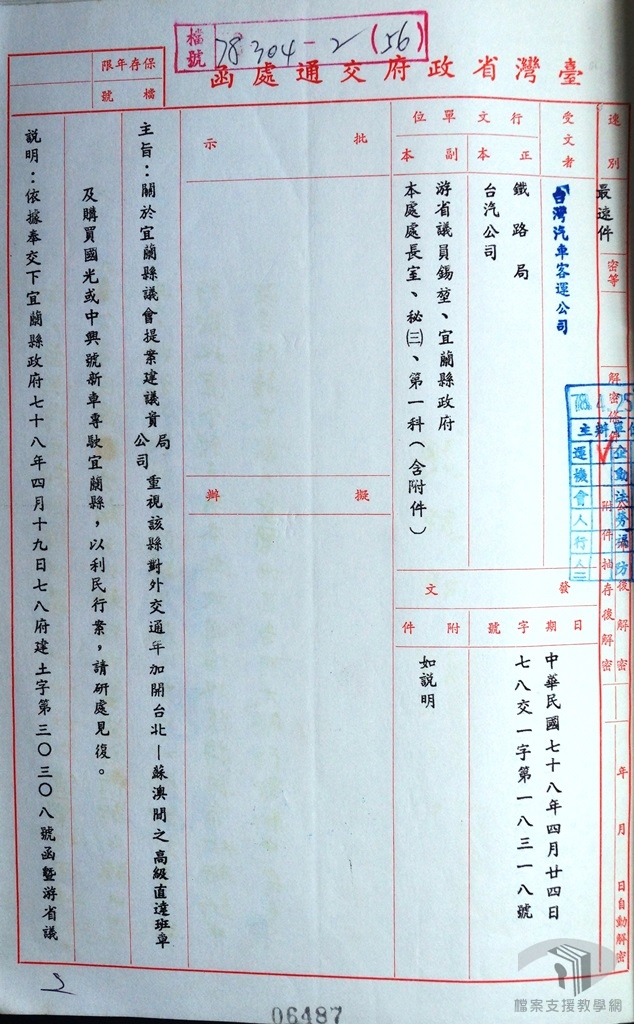 檔號
78304-2(56)
臺灣省政府交通處函
保存年限
檔號
速別
最速件
密等
解密條件
附件抽存後解密
年月日自動解密
受文者
台灣汽車客運公司
行文單位
正本
鐵路局
台汽公司
副本
游省議員錫堃、宜蘭縣政府
本處處長室、秘㈢、第一科(含附件)
發文
日期
中華民國七十八年四月廿四日
字號
七八交一字第一八三一八號
附件
如說明
批示
擬辦
主旨:關於宜蘭縣議會提案建議貴局公司重視該縣對外交通年加開台北—蘇澳間之高級直達班車
及購買國光或中興號新車專駛宜蘭縣,以利民行案,請研處見復。
說明:依據奉交下宜蘭縣政府七十八年四月十九日七八府建土字第三〇三〇八號函暨游省議
主辦單位
運機會人行
企勤法勞福防
06487
檔案支援教學網